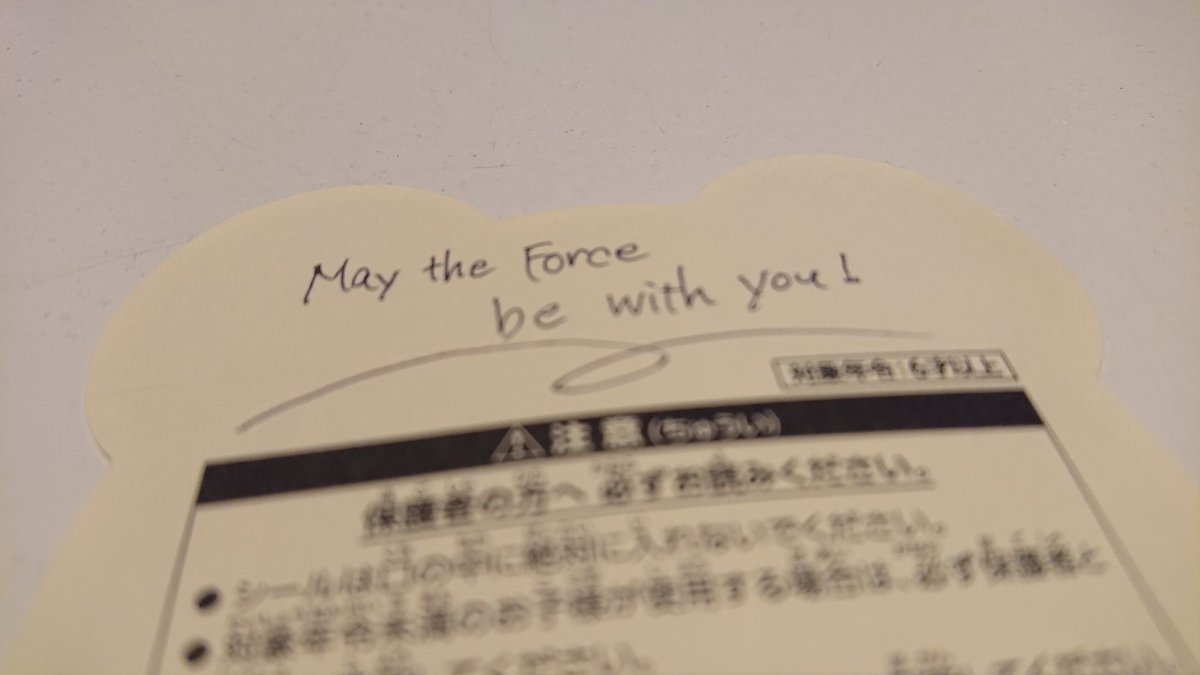 May the Force
be with you!
対象年令:6才以上
注意(ちゅうい)
保護者の方へ 必ずお読みください。
シールは口の中に絶対に入れないでください。
対象年令未満のお子様が使用する場合は、必ず保護者と
てください。